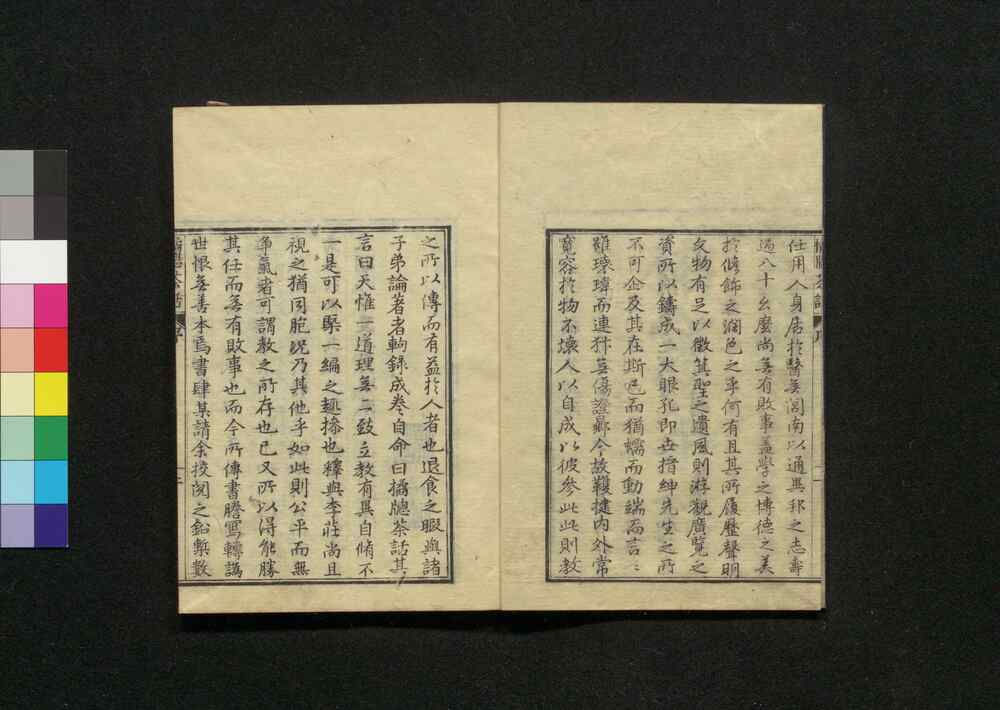 仕用人身居於醫無閭南以通異邦之志壽
過八十幺麼尚無有敗事盖學之博德之美
於脩飾之潤色之乎何有且其所履歷聲明
文物有足以徵箕聖之遺風則游觀廣覽之
資所以鑄成一大眼孔即世搢紳先生之所
不可企及其在斯已而猶蠕而動端而言〻
雖瓌瑋而連犿無傷證曏今故韄揵内外常
寬容於物不壞人以自成以彼參此此則教
之所以傳而有益於人者也退食之暇與諸
子弟論著者輒錄成卷自命曰橘牕茶話其
言曰天惟一道理無二致立教有異自脩不
一是可以槩一編之趣操也釋與李莊尚且
視之猶同胞況乃其他乎如此則公平而無
爭氣者可謂教之所存也已又所以得能勝
其任而無有敗事也而今所傳書謄寫轉譌
世恨無善本焉書肆某請余挍閱之鉛槧數
橘牕茶話 序